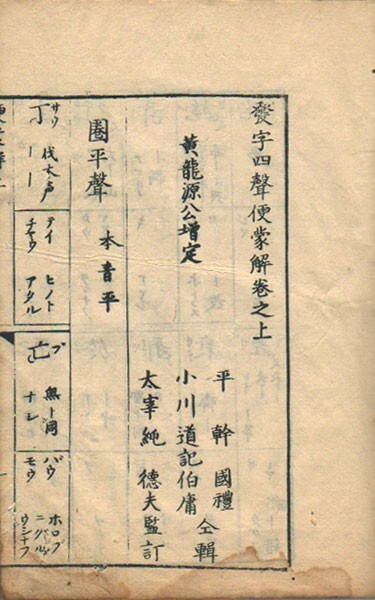 發字四聲便蒙解卷之上
黃龍源公增定
平 幹 國禮
小川道記伯庸 仝輯
太宰純 德夫監訂
圈平聲 本音平
丁 サウ 伐木声 丨丨
テイ ヒノト
チヤウ アタル
亡 ブ 無ト同 ナシ
バウ ホロブ ニグル
モウ ウシナフ